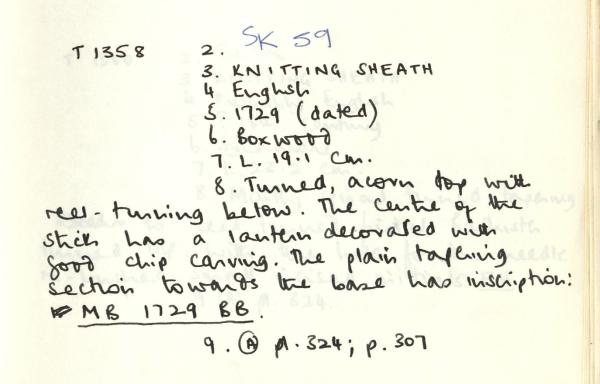 SK 59
T 1358 2.
3. KNITTING SHEATH
4 English
5. 1729 (dated)
6. Boxwood
7. L. 19.1 cm.
8. Turned, acorn top with
reel-turning below. The centre of the
stick has a lantern decorated with
good chip carving. The plain tapering
section towards the base has inscription:
MB 1729 BB.
9. Ⓐ pl. 324; p. 307